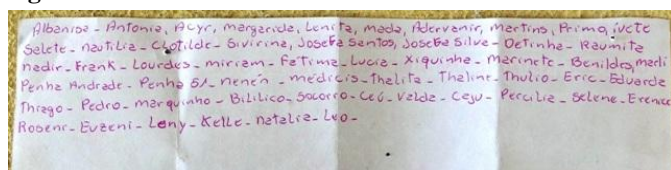 Albanisa - Antonia, Acyr, margarida, Lenita, mada, Adervanir, martins, Primo, ivete
Salete - nautilia - Clotilde - Sivirina, Josefa Santos, Josefa Silva - Detinha - Raumita
nadir - Frank - Lourdes - miriam - Fatima - Lucia - Xiquinha - marinete - Benildes, marli
Penha Andrade - Penha - nenén - médicis - Thalita - Thaline - Thulio - Eric - Eduarda
Thiago - Pedro - marquinho - Bililico - Socorro - Ceú - Valda - Ceju - Percilia - Selene - Erenice
Rosenr - Euzeni - Lony - Kelle - natalia - Leo -